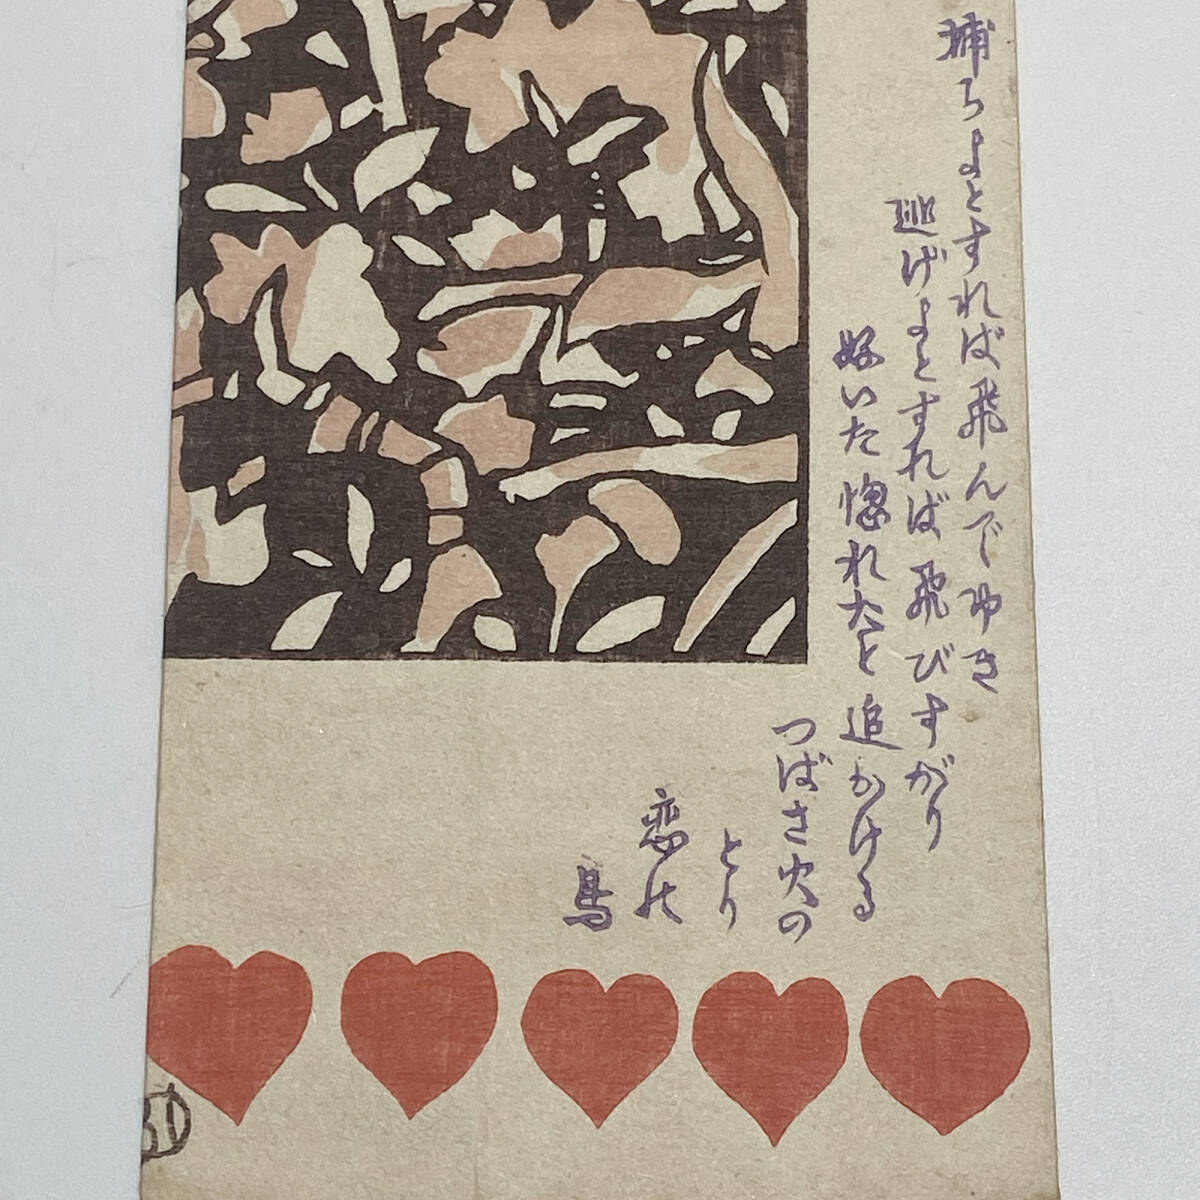 捕らよとすれば飛んでゆき
逃げよとすれば飛びすがり
好いた惚れたと追かける
つばさ火の
とり
恋の
鳥